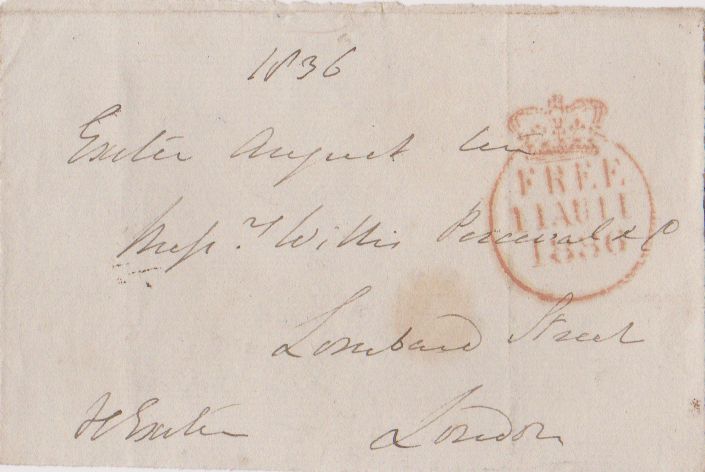 1836
Exeter August ten
Messrs Willis Percival & Co
Lombard Street
H Exeter London
FREE
11 AU 11
1836